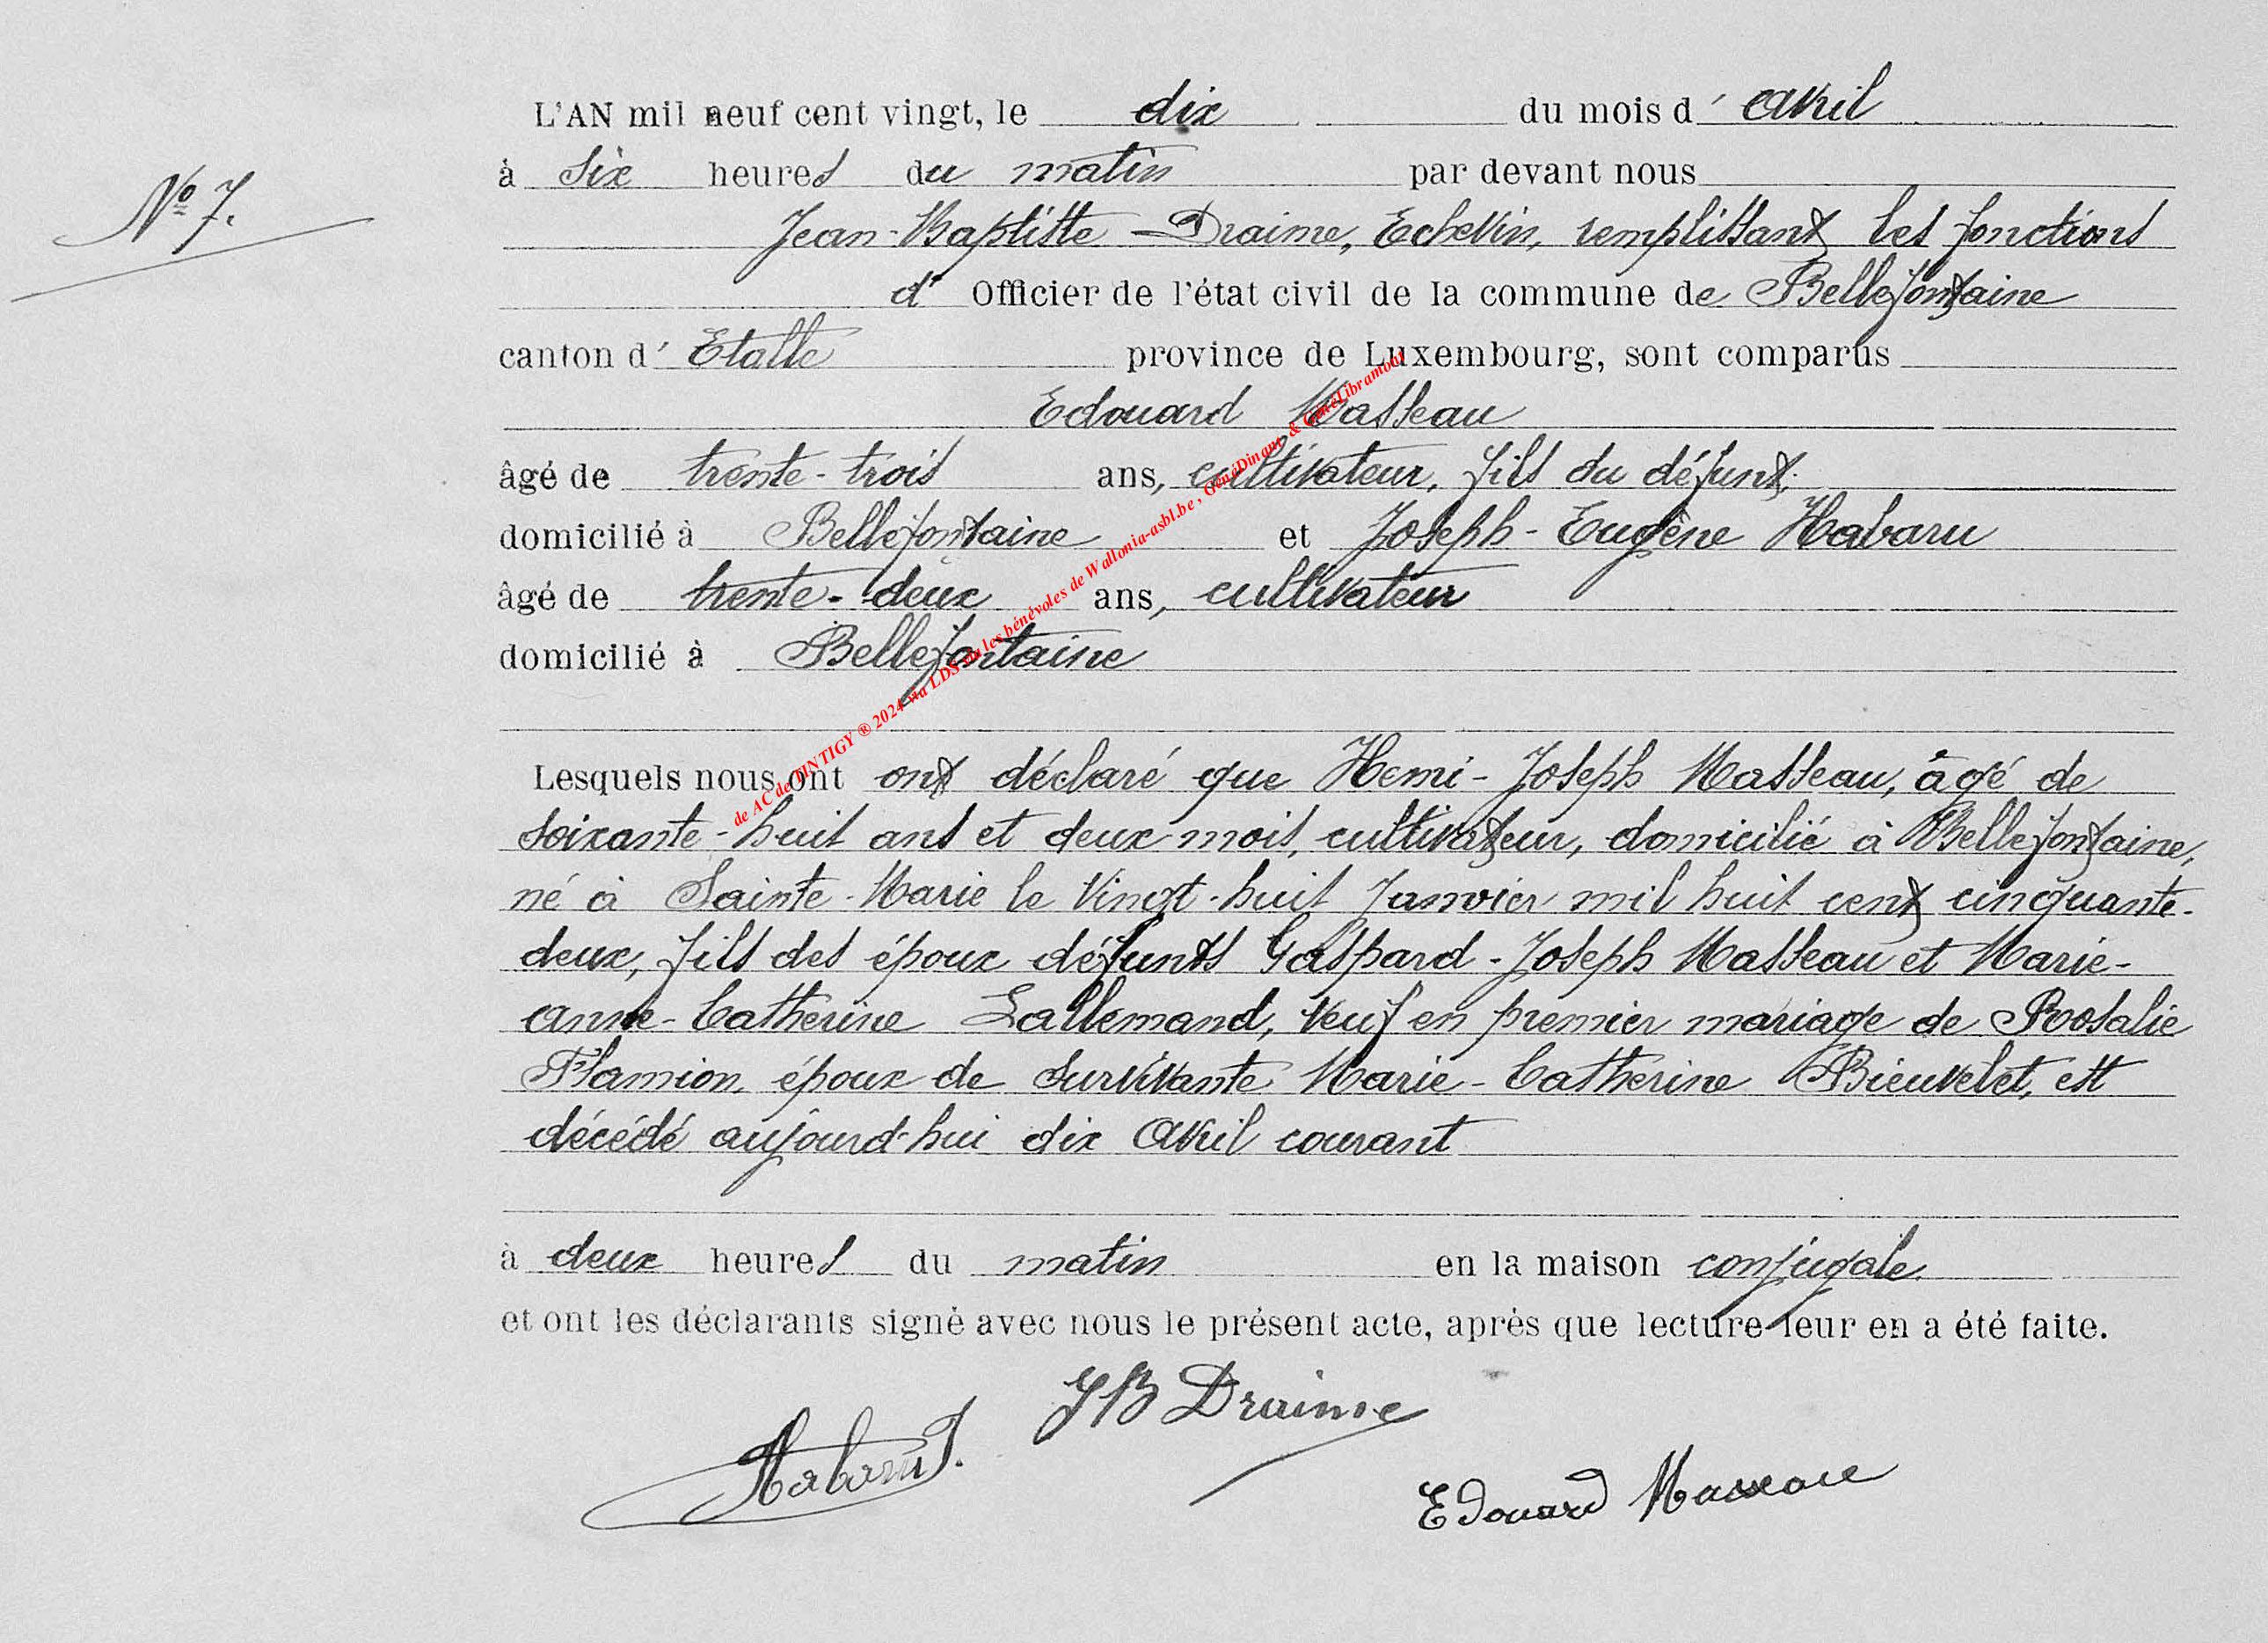 L'AN mil neuf cent vingt, le dix du mois d' Avril
N° 7.
à six heures du matin par devant nous
Jean-Baptiste Draime, Echevin, remplissant les fonctions
d' Officier de l'état civil de la commune de Bellefontaine
canton d' Etalle province de Luxembourg, sont comparus
Edouard Masseau
âgé de trente-trois ans, cultivateur, fils du défunt,
domicilié à Bellefontaine et Joseph-Eugène Habaru
âgé de trente-deux ans, cultivateur
domicilié à Bellefontaine
Lesquels nous ont ont déclaré que Henri-Joseph Masseau, âgé de
soixante-huit ans et deux mois, cultivateur, domicilié à Bellefontaine,
né à Sainte-Marie le vingt-huit Janvier mil huit cent cinquante-
deux, fils des époux défunts Gaspard-Joseph Masseau et Marie-
Anne-Catherine Lallemand, veuf en premier mariage de Rosalie
Flamion, époux de survivante Marie-Catherine Bieuvelet, est
décédé aujourd'hui dix Avril courant
à deux heures du matin en la maison conjugale.
et ont les déclarants signé avec nous le présent acte, après que lecture leur en a été faite.
JB Draime
Habaru J.
Edouard Masseau
de AC de TINTIGY ® 2024 via LDS via les bénévoles de Wallonia-asbl.be, GénéDinant & GénéLibramont